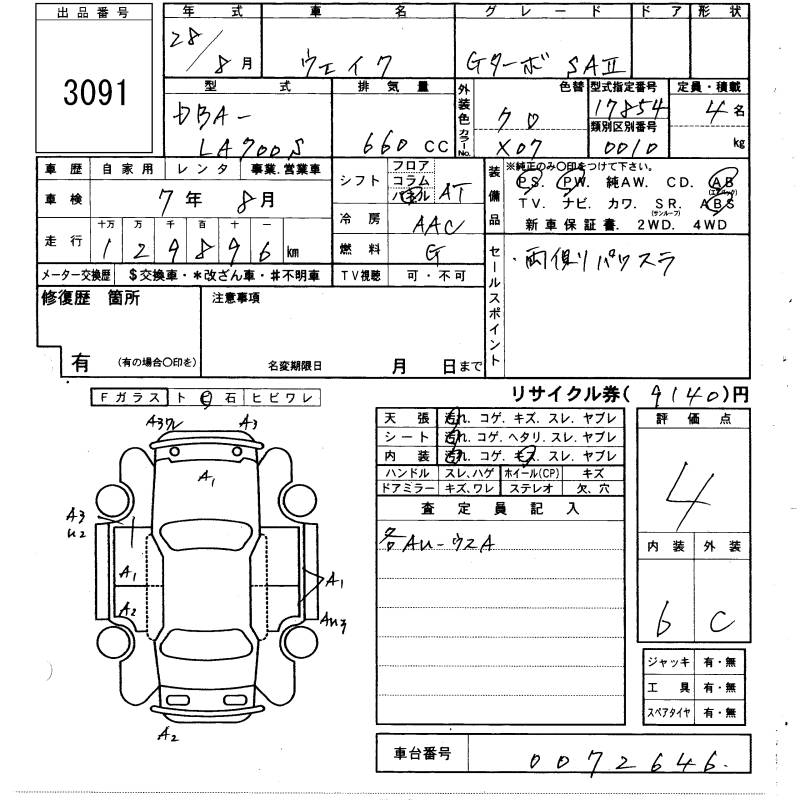 出品番号 年式 車名 グレード ドア 形状
3091 28/8月 ウェイク Gターボ SAⅡ
型式 排気量 外装色 色替 型式指定番号 定員・積載
DBA-LA700S 660CC クロ 17854 4名
カラーNo. X07 類別区別番号 0010 kg
車歴 自家用 レンタ 事業.営業車
車検 7年 8月
走行 十万 万 千 百 十 一
129896km
メーター交換歴 $交換車・*改ざん車・♯不明車
シフト フロア コラム パネル AT
冷房 AAC
燃料 G
TV視聴 可・不可
装備品 ※純正のみ〇印をつけて下さい。
PS. PW. 純AW. CD. AB(エアバック)
TV. ナビ. カワ. SR.(サンルーフ) ABS
新車保証書. 2WD. 4WD
セールスポイント
・両側リパワスラ
修復歴 箇所
有 (有の場合〇印を)
注意事項
名変期限日 月 日まで
リサイクル券( 9140)円
Fガラス トビ石 ヒビワレ
A3 A3
A1
A3
U2
A1
A2
A1
A2
天張 汚れ. コゲ. キズ. スレ. ヤブレ
シート 汚れ. コゲ. ヘタリ. スレ. ヤブレ
内装 汚れ. コゲ. キズ. スレ. ヤブレ
ハンドル スレ、ハゲ ホイール(CP) キズ
ドアミラー キズ、ワレ ステレオ 欠、穴
査定員記入
各AU-ウエA
評価点
4
内装 外装
b C
ジャッキ 有・無
工具 有・無
スペアタイヤ 有・無
車台番号 0072646.